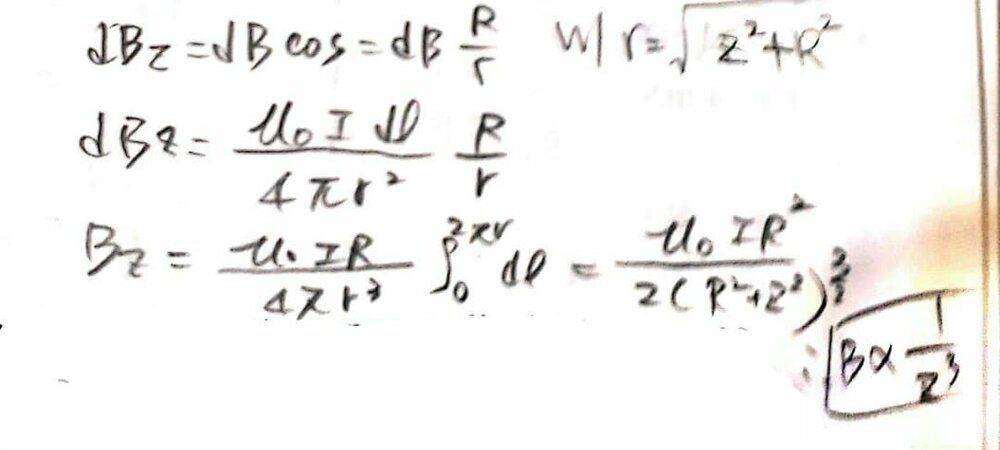 dB_z = dB cos = dB R/r w/ r = √(z²+R²)
dB_z = μ₀ I dl / 4πr² R/r
B_z = μ₀ I R / 4πr³ ∫₀^{2πr} dl = μ₀ I R² / 2(R²+z²)^{3/2}
∴ B ∝ 1/z³